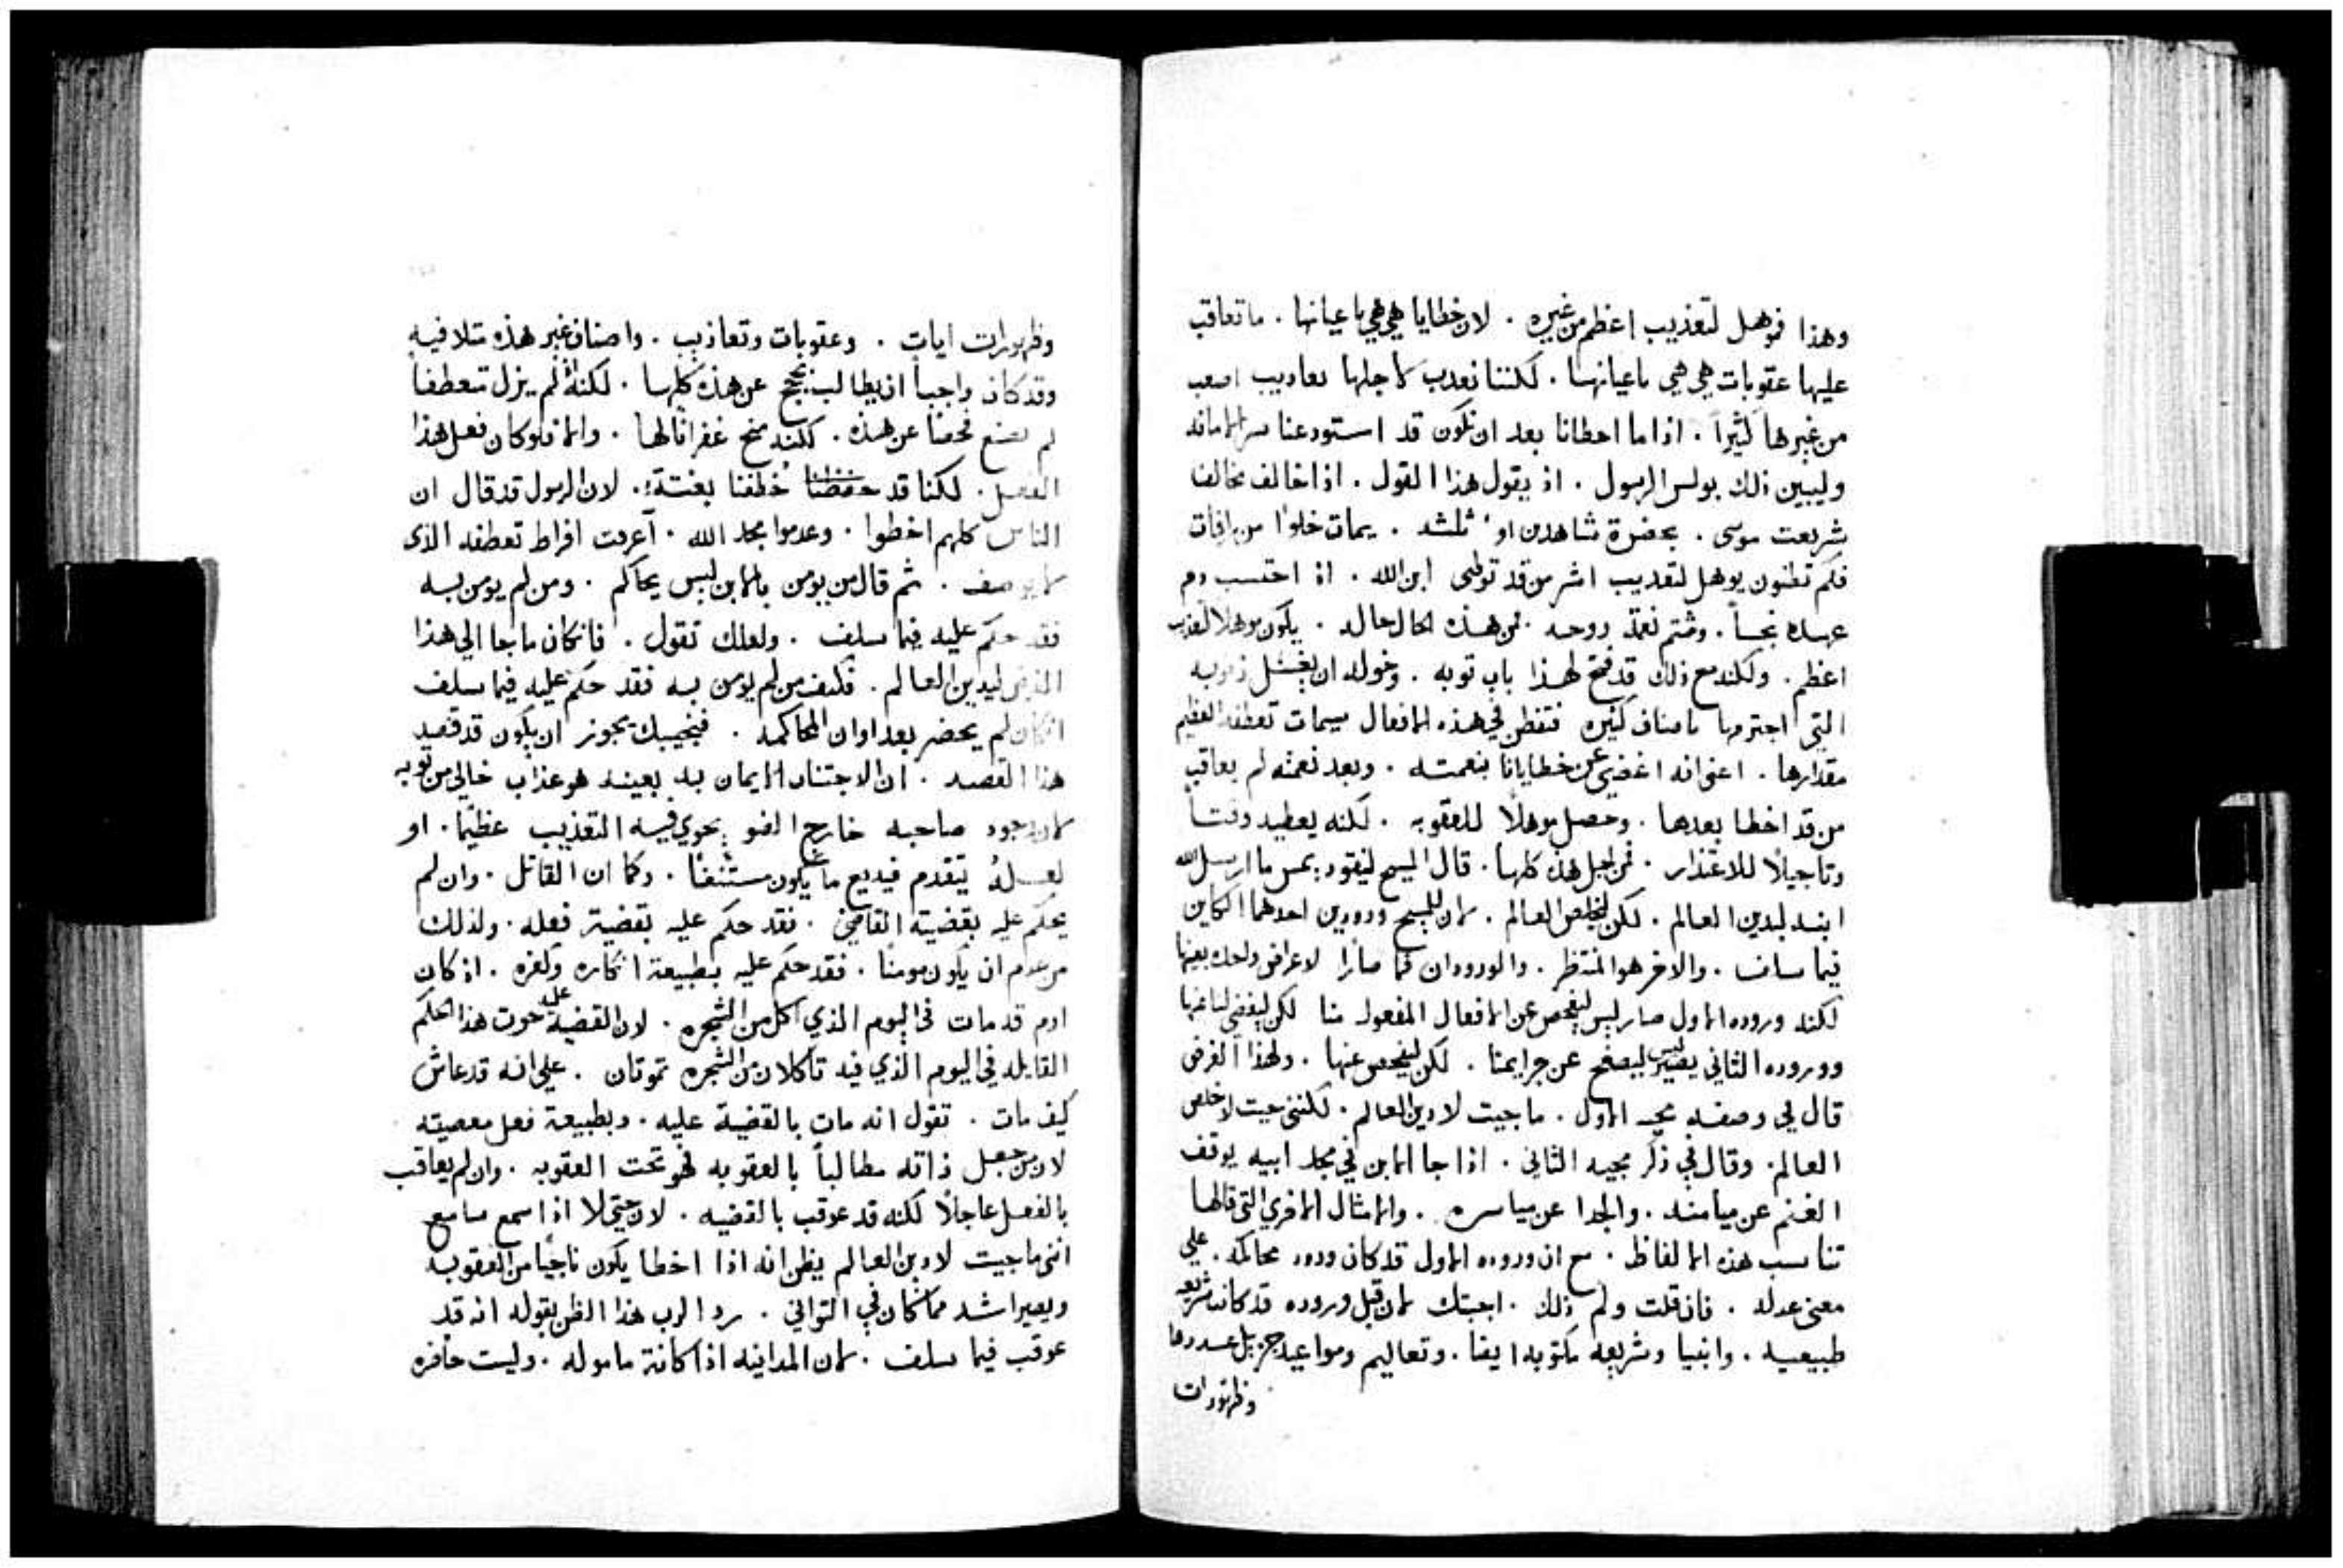 وهذا فوهل لتعذيب اعظم من غيره . لان خطايا هي هي باعيانها . ما تعاقب
عليها عقوبات هي هي باعيانها . لكننا نعدب لاجلها تعاديب اصعب
من غيرها كثيراً . اذا ما اخطانا بعد ان نكون قد استودعنا
وليبين ذلك بولس الرسول . اذ يقول هذا القول . اذا خالف مخالف
شريعت موسى . بحضرة شاهدين او ثلثه . يمات خلوا من رافات
فكم تظنون يوهل لتعديب اشر من قد توطى ابن الله . اذ احتسب دم
عهده نجساً . وشتم نعمة روحه . فمن هذه الحال حاله . يكون موهلا لتعذيب
اعظم . ولكنه مع ذلك قد فتح لهذا باب توبه . وخوله ان يغسل ذنوبه
التي اجترمها باصناف كثيره فتفطن في هذه الافعال سيمات تعطفه العظيم
مقدارها . اعني انه اغضى عن خطايانا بنعمته . وبعد نعمته لم يعاقب
من قد اخطا بعدها . وحصل موهلاً للعقوبه . لكنه يعطيه وقتاً
وتاجيلاً للاعتذار . فمن اجل هذه كلها . قال المسيح لنيقوديمس ما ارسل الله
ابنه ليدين العالم . لكن ليخلص العالم . لان للمسيح ورودين احدهما الكاين
فيما سلف . والاخر هو المنتظر . والورودان فما صارا لاعراض واحده بعينها
لكنه وروده الاول صار ليس ليفحص عن الافعال المفعوله منا لكن ليغضي لنا عنها
ووروده الثاني يصير ليس ليصفح عن جرايمنا . لكن ليفحص عنها . ولهذا الغرض
قال في وصفه مجيه الاول . ما جيت لادين العالم . لكنني جيت لاخلص
العالم . وقال في ذكر مجيه الثاني . اذا جا الابن في مجد ابيه يوقف
الغنم عن ميامنه . والجدا عن مياسره . والامثال الاخري التي قالها
تناسب هذه الالفاظ . مع ان وروده الاول قد كان ورود محاكمه . علي
معنى عدله . فان قلت ولم ذلك . اجبتك لان قبل وروده قد كانت شريعه
طبيعيه . وانبيا وشريعه مكتوبه ايضا . وتعاليم ومواعيد جزيل عددها
وظهورات
وظهورات ايات . وعقوبات وتعاذيب . واصناف غير هذه تلافيه
وقد كان واجباً ان يطالب بحجج عن هذه كلها . لكنه اذ لم يزل متعطفاً
لم يصنع فحصا عن هذه . لكنه منح غفرانا لها . والا فلو كان فعل هذا
الفعل . لكنا قد خطفنا بغتة . لان الرسول قد قال ان
الناس كلهم اخطوا . وعدموا مجد الله . أعرفت افراط تعطفه الذى
لا يوصف . ثم قال من يومن بالابن ليس يحاكم . ومن لم يومن به
فقد حكم عليه فيما سلف . ولعلك تقول . فان كان ما جا الي هذا
الغرض ليدين العالم . فكيف من لم يومن به فقد حكم عليه فيما سلف
ان كان لم يحضر بعد اوان المحاكمه . فنجيبك يجوز ان يكون قد قصد
هذا القصد . ان الاجتناب الايمان به بعينه هو عذاب خالي من توبه
لان وجود صاحبه خارج الضو يحوي فيه التعذيب عظيماً . او
لعله يتقدم فيديع ما يكون مستنفاً . وكما ان القاتل . وان لم
يحكم عليه بقضية القاضي . فقد حكم عليه بقضية فعله . ولذلك
من عدم ان يكون مومناً . فقد حكم عليه بطبيعة انكاره وكفره . اذ كان
ادم قد مات في اليوم الذي اكل من الشجره . لان القضية عليه حوت هذا الحكم
القايله في اليوم الذي فيه تاكلان من الشجره تموتان . علي انه قد عاش
كيف مات . تقول انه مات بالقضية عليه . وبطبيعة فعل معصيته
لان من جعل ذاته مطالباً بالعقوبه فهو تحت العقوبه . وان لم يعاقب
بالفعل عاجلاً لكنه قد عوقب بالقضيه . لان حتى لا اذا سمع سامع
انني ما جيت لادين العالم يظن انه اذا اخطا يكون ناجياً من العقوبه
ويصير اشد مما كان في التواني . رد الرب هذا الظن بقوله انه قد
عوقب فيما سلف . لان المداينه اذا كانة مامولة . وليست حاضره